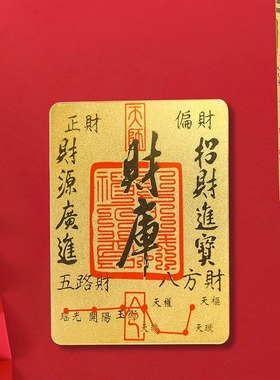 正財
偏財
招財進寶
財庫
財源廣進
五路財
八方財
天權
天樞
瑶光
開陽
玉衡
天璇